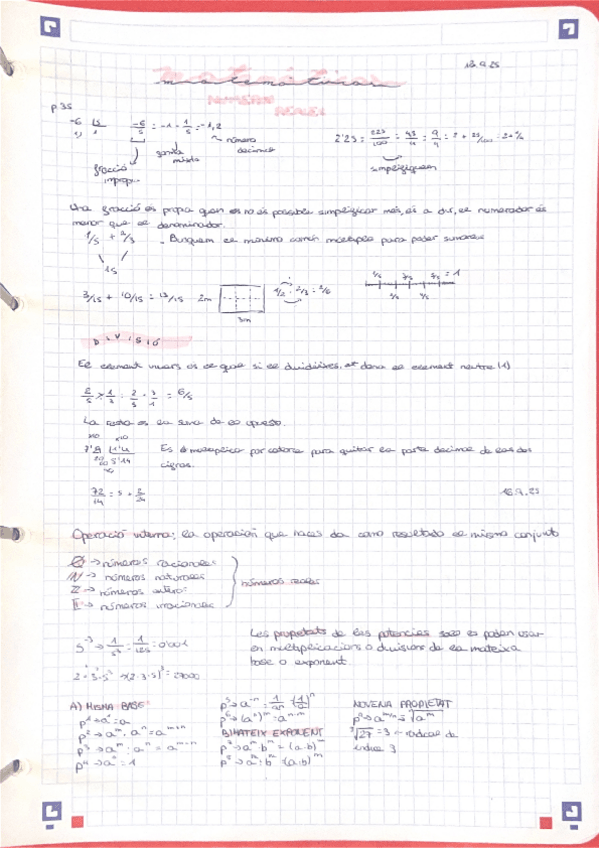 matemáticas
NÚMEROS
REALES
p 35
-6/5 = -1 - 1/5 = -1,2
número
decimal
fracció
2'25 = 225/100 = 45/ = 9/4 = 2 + 25/100
simplifiquem
Una fracció es propia quan es no és possible simplificar més, és a dir, el numerador és
menor que el denominador.
1/5 + 2/3 - Busquem el mínimo común múltiplo para poder sumarles
15
3/15 + 10/15 = 13/15 2m 1/2 · 2/3 = 2/6
3m
DIVISIÓ
El element invers es el que si el divideixes, et dona el element neutre (1)
2/5 × 1/3 : 2/3 · 3/1 = 6/5
La resta es la suma de lo opuesto.
Es multiplica por para quitar la parte decimal de las dos
cifras.
72/14 = 5 + 2/
16.9.25
Operació interna: la operación que haces da como resultado el mismo conjunto
Q -> números racionales
N -> números naturales
Z -> números enteros
I -> números irracionales
números reales
5⁻³ -> 1/5³ = 1/125 = 0'008
2³·3³·5³ -> (2·3·5)³ = 27000
Les propietats de las potencies solo es poden usar
en multiplicacions o divisions de la mateixa
base o exponent
A) MISMA BASE
p¹ -> a¹ = a
p² -> aᵐ · aⁿ = aᵐ⁺ⁿ
p³ -> aᵐ : aⁿ = aᵐ⁻ⁿ
p⁴ -> a⁰ = 1
p⁵ -> a⁻ⁿ = 1/aⁿ = (1/a)ⁿ
p⁶ -> (aⁿ)ᵐ = aⁿ·ᵐ
B) MATEIX EXPONENT
p⁷ -> aᵐ · bᵐ = (a·b)ᵐ
p⁸ -> aᵐ : bᵐ = (a:b)ᵐ
NOVENA PROPIETAT
p⁹ -> aᵐ/ⁿ = ⁿ√aᵐ
³√27 = 3 -> radical de
índice 3